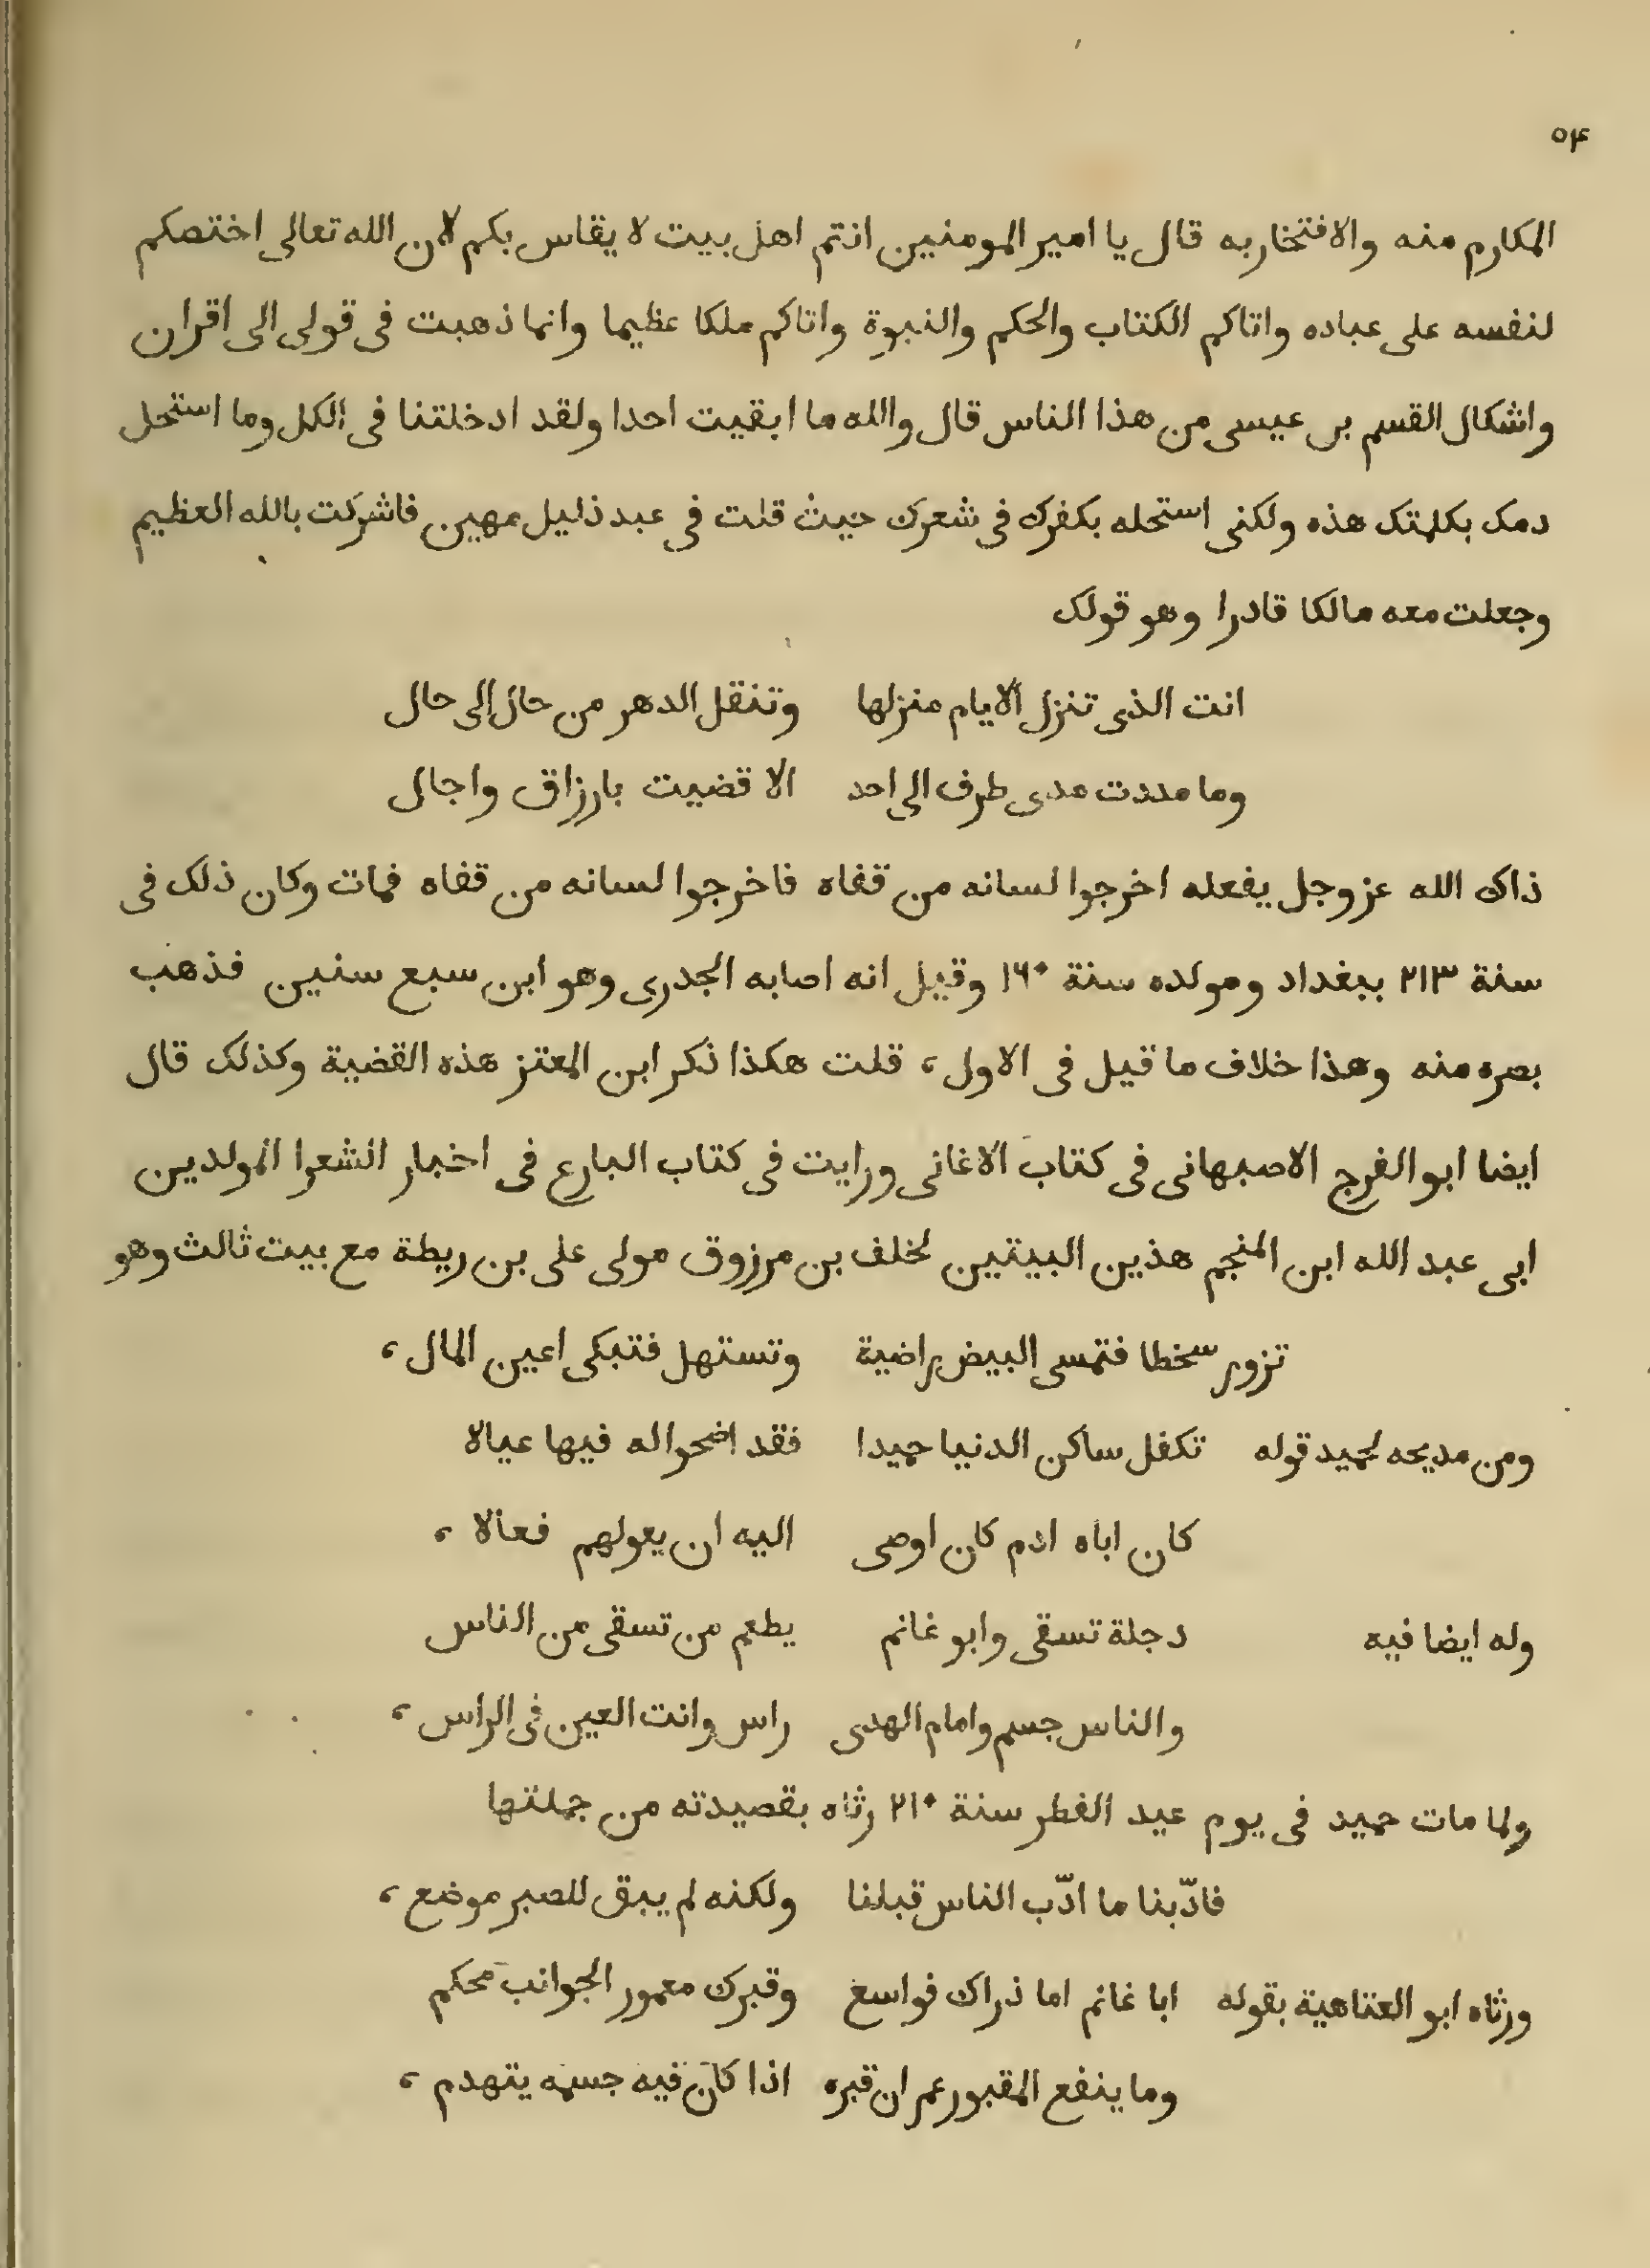 ٥٤
المكارم منه والافتخار به قال يا امير المومنين انتم اهل بيت لا يقاس بكم لان الله تعالى اختصكم
لنفسه على عباده واتاكم الكتاب والحكم والنبوة واتاكم ملكا عظيما وانما ذهبت فى قولى الى اقران
واشكال القسم بن عيسى من هذا الناس قال والله ما ابقيت احدا ولقد ادخلتنا فى الكل وما استحل
دمك بكلمتك هذه ولكنى استحله بكفرك فى شعرك حيث قلت فى عبد ذليل مهين فاشركت بالله العظيم
وجعلت معه مالكا قادرا وهو قولك
انت الذى تنزل الايام منزلها وتنقل الدهر من حال الى حال
وما مددت مدى طرف الى احد الا قضيت بارزاق واجال
ذاك الله عز وجل يفعله اخرجوا لسانه من قفاه فاخرجوا لسانه من قفاه فمات وكان ذلك فى
سنة ٢١٣ ببغداد ومولده سنة ١٦٠ وقيل انه اصابه الجدرى وهو ابن سبع سنين فذهب
بصره منه وهذا خلاف ما قيل فى الاول، قلت هكذا ذكر ابن المعتز هذه القضية وكذلك قال
ايضا ابو الفرج الاصبهانى فى كتاب الاغانى ورايت فى كتاب البارع فى اخبار الشعرا المولدين
ابى عبد الله ابن المنجم هذين البيتين لخلف بن مرزوق مولى على بن ريطة مع بيت ثالث وهو
تزور سخطا فتمسى البيض راضية وتستهل فتبكى اعين المال،
ومن مديحه لحميد قوله تكفل ساكن الدنيا حميدا فقد اضحوا له فيها عيالا
كان اباه ادم كان اوصى اليه ان يعولهم فعالا،
وله ايضا فيه دجلة تسقى وابو غانم يطعم من تسقى من الناس
والناس جسم وامام الهدى راس وانت العين فى الراس،
ولما مات حميد فى يوم عيد الفطر سنة ٢١٠ رثاه بقصيدته من جملتها
فادّبنا ما ادّب الناس قبلنا ولكنه لم يبق للصبر موضع،
ورثاه ابو العتاهية بقوله ابا غانم اما ذراك فواسع وقبرك معمور الجوانب محكم
وما ينفع المقبور عمران قبره اذا كان فيه جسمه يتهدم،